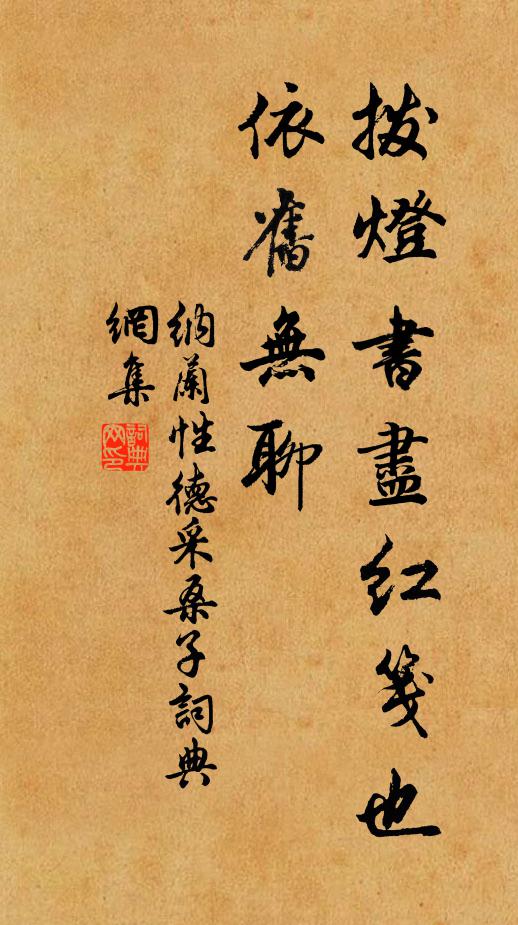 拨燈書盡紅箋也
依舊無聊
納蘭性德采桑子詞典
網集
詞典
网印